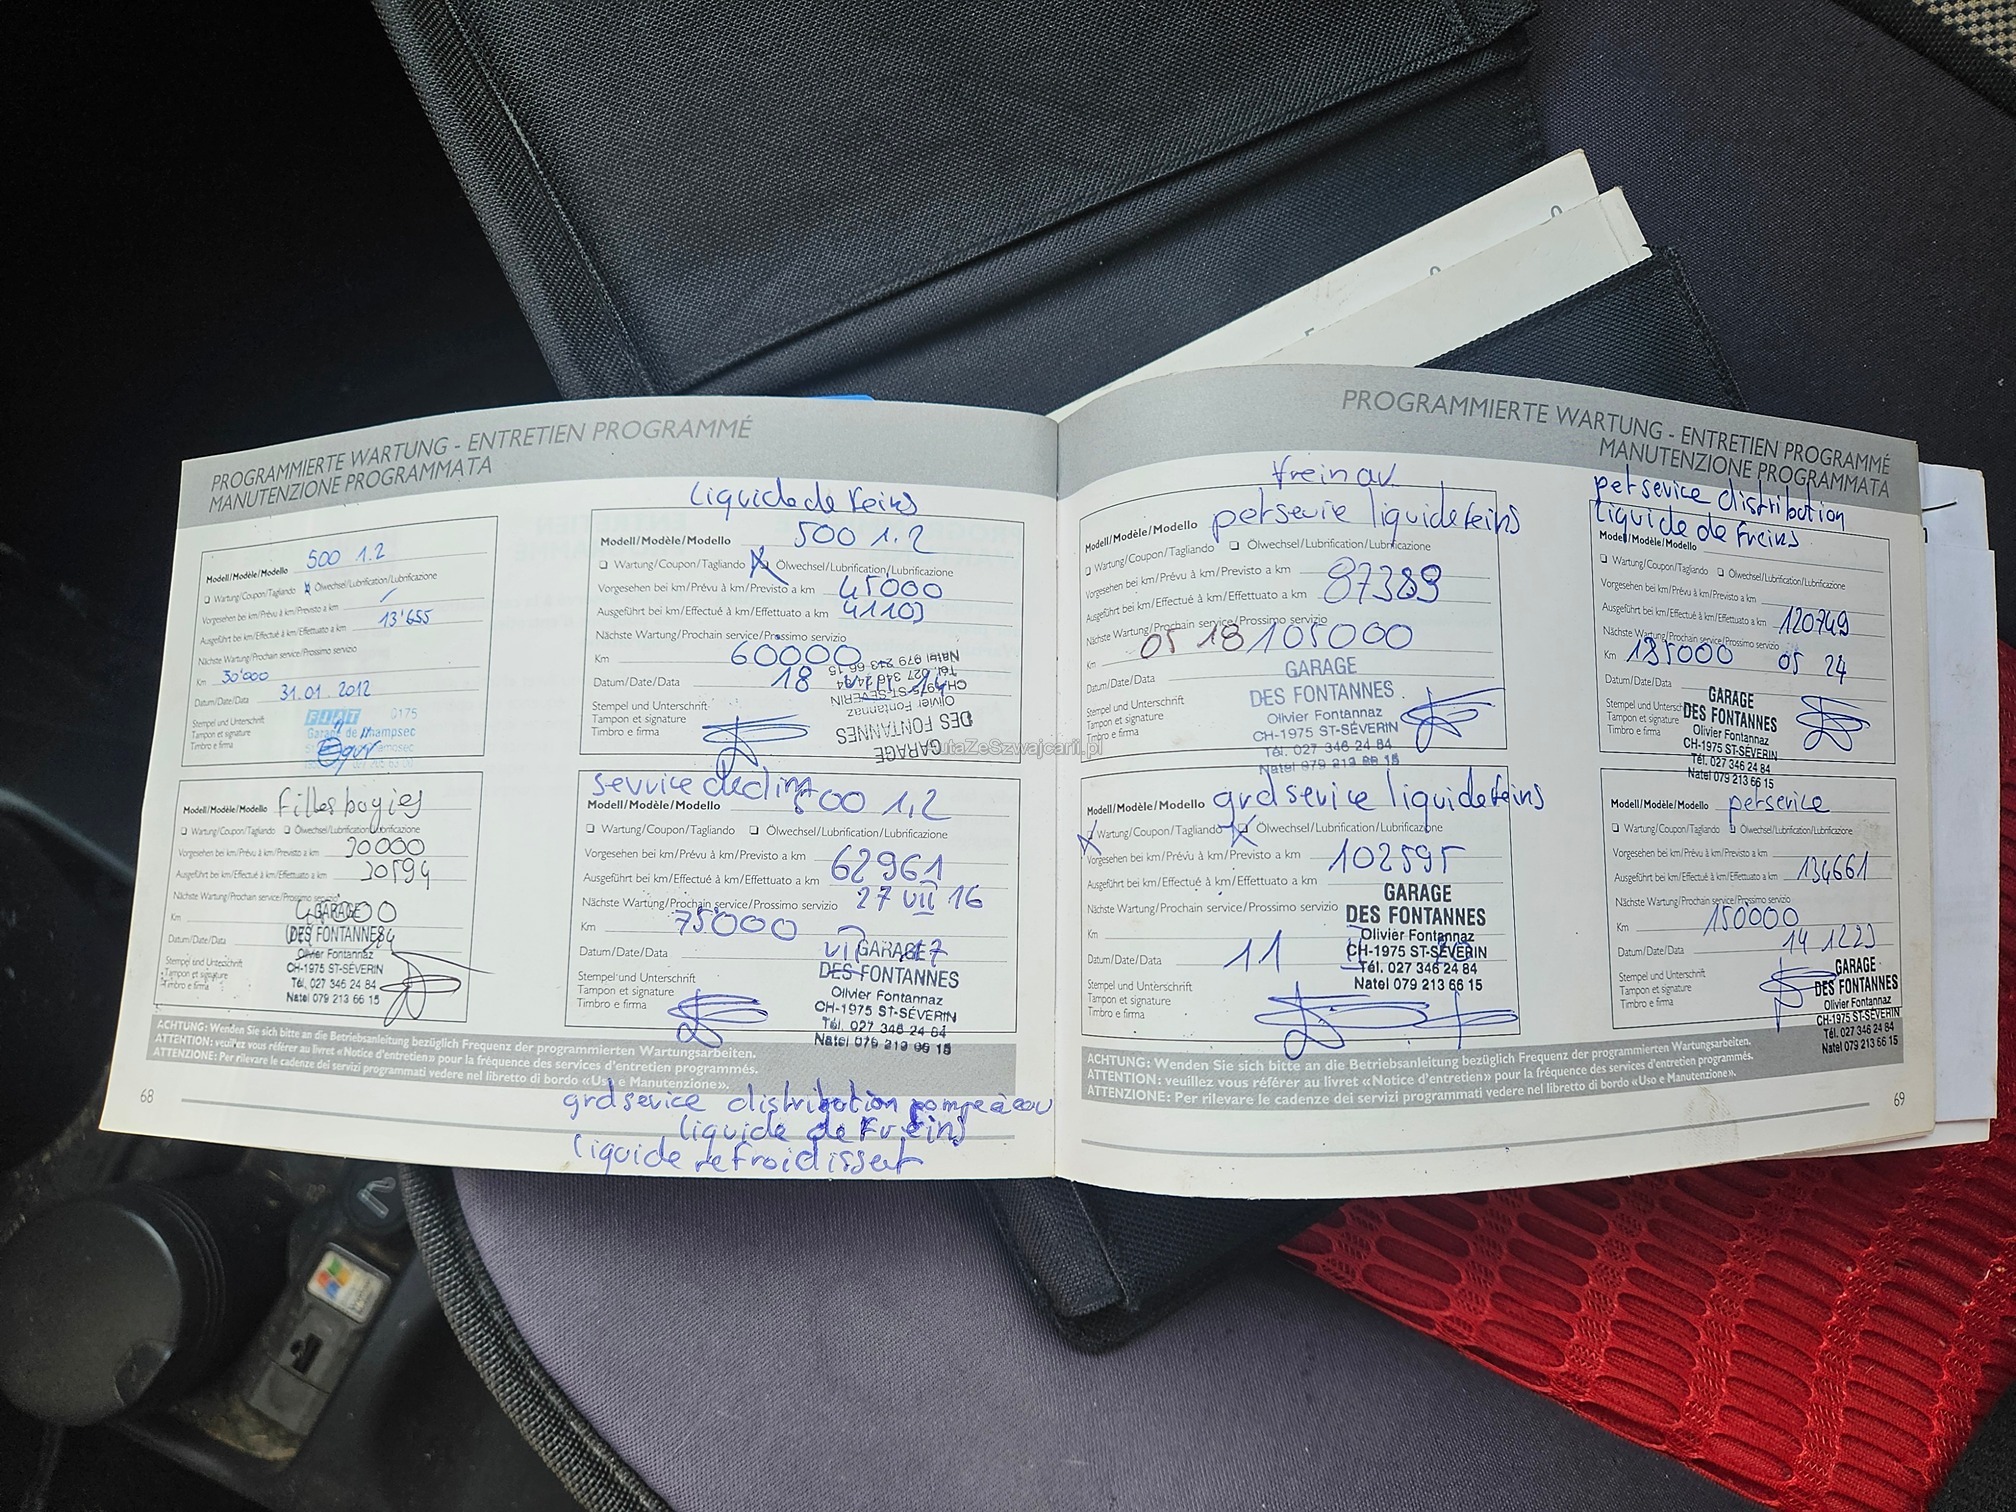 PROGRAMMIERTE WARTUNG - ENTRETIEN PROGRAMMÉ
MANUTENZIONE PROGRAMMATA
Modell/Modèle/Modello 500 1.2
Wartung/Coupon/Tagliando Ölwechsel/Lubrification/Lubrificazione
Vorgesehen bei km/Prévu à km/Previsto a km
Ausgeführt bei km/Effectué à km/Effettuato a km 13'655
Nächste Wartung/Prochain service/Prossimo servizio
Km 30'000
Datum/Date/Data 31.01.2012
Stempel und Unterschrift
Tampon et signature
Timbro e firma
FIAT 0175
Garage de Champsec
Modell/Modèle/Modello Filtes bogies
Wartung/Coupon/Tagliando Ölwechsel/Lubrification/Lubrificazione
Vorgesehen bei km/Prévu à km/Previsto a km 30000
Ausgeführt bei km/Effectué à km/Effettuato a km 30594
Nächste Wartung/Prochain service/Prossimo servizio
Km
Datum/Date/Data
Stempel und Unterschrift
Tampon et signature
Timbro e firma
GARAGE
DES FONTANNES
Olivier Fontannaz
CH-1975 ST-SÉVERIN
Tél. 027 346 24 84
Natel 079 213 66 15
liquide de freins
Modell/Modèle/Modello 500 1.2
Wartung/Coupon/Tagliando Ölwechsel/Lubrification/Lubrificazione
Vorgesehen bei km/Prévu à km/Previsto a km 45000
Ausgeführt bei km/Effectué à km/Effettuato a km 41103
Nächste Wartung/Prochain service/Prossimo servizio
Km 60000
Datum/Date/Data 18
Stempel und Unterschrift
Tampon et signature
Timbro e firma
GARAGE
DES FONTANNES
Olivier Fontannaz
CH-1975 ST-SÉVERIN
Tél. 027 346 24 84
Natel 079 213 66 15
service
Modell/Modèle/Modello 500 1,2
Wartung/Coupon/Tagliando Ölwechsel/Lubrification/Lubrificazione
Vorgesehen bei km/Prévu à km/Previsto a km 62961
Ausgeführt bei km/Effectué à km/Effettuato a km
Nächste Wartung/Prochain service/Prossimo servizio 27 VII 16
Km 75000
Datum/Date/Data
Stempel und Unterschrift
Tampon et signature
Timbro e firma
GARAGE
DES FONTANNES
Olivier Fontannaz
CH-1975 ST-SÉVERIN
Tél. 027 346 24 84
Natel 079 213 66 15
ACHTUNG: Wenden Sie sich bitte an die Betriebsanleitung bezüglich Frequenz der programmierten Wartungsarbeiten.
ATTENTION: veuillez vous référer au livret «Notice d'entretien» pour la fréquence des services d'entretien programmés.
ATTENZIONE: Per rilevare le cadenze dei servizi programmati vedere nel libretto di bordo «Uso e Manutenzione».
68
grd sevice distribution pompe à eau
liquide de Freins
liquide refroidissent
PROGRAMMIERTE WARTUNG - ENTRETIEN PROGRAMMÉ
MANUTENZIONE PROGRAMMATA
frein av
Modell/Modèle/Modello pet sevie liquide feins
Wartung/Coupon/Tagliando Ölwechsel/Lubrification/Lubrificazione
Vorgesehen bei km/Prévu à km/Previsto a km 87389
Ausgeführt bei km/Effectué à km/Effettuato a km
Nächste Wartung/Prochain service/Prossimo servizio
Km 05 18 105000
Datum/Date/Data
Stempel und Unterschrift
Tampon et signature
Timbro e firma
GARAGE
DES FONTANNES
Olivier Fontannaz
CH-1975 ST-SÉVERIN
Tél. 027 346 24 84
Natel 079 213 66 15
Modell/Modèle/Modello grd sevice liquide feins
Wartung/Coupon/Tagliando Ölwechsel/Lubrification/Lubrificazione
Vorgesehen bei km/Prévu à km/Previsto a km 102595
Ausgeführt bei km/Effectué à km/Effettuato a km
Nächste Wartung/Prochain service/Prossimo servizio
Km
Datum/Date/Data 11
Stempel und Unterschrift
Tampon et signature
Timbro e firma
GARAGE
DES FONTANNES
Olivier Fontannaz
CH-1975 ST-SÉVERIN
Tél. 027 346 24 84
Natel 079 213 66 15
pet sevice distribution
liquide de freins
Modell/Modèle/Modello
Wartung/Coupon/Tagliando Ölwechsel/Lubrification/Lubrificazione
Vorgesehen bei km/Prévu à km/Previsto a km
Ausgeführt bei km/Effectué à km/Effettuato a km 120749
Nächste Wartung/Prochain service/Prossimo servizio
Km 135000 05 24
Datum/Date/Data
Stempel und Unterschrift
Tampon et signature
Timbro e firma
GARAGE
DES FONTANNES
Olivier Fontannaz
CH-1975 ST-SÉVERIN
Tél. 027 346 24 84
Natel 079 213 66 15
Modell/Modèle/Modello pet sevice
Wartung/Coupon/Tagliando Ölwechsel/Lubrification/Lubrificazione
Vorgesehen bei km/Prévu à km/Previsto a km
Ausgeführt bei km/Effectué à km/Effettuato a km 134661
Nächste Wartung/Prochain service/Prossimo servizio
Km 150000
Datum/Date/Data 14 12 23
Stempel und Unterschrift
Tampon et signature
Timbro e firma
GARAGE
DES FONTANNES
Olivier Fontannaz
CH-1975 ST-SÉVERIN
Tél. 027 346 24 84
Natel 079 213 66 15
ACHTUNG: Wenden Sie sich bitte an die Betriebsanleitung bezüglich Frequenz der programmierten Wartungsarbeiten.
ATTENTION: veuillez vous référer au livret «Notice d'entretien» pour la fréquence des services d'entretien programmés.
ATTENZIONE: Per rilevare le cadenze dei servizi programmati vedere nel libretto di bordo «Uso e Manutenzione».
69
AutaZeSzwajcarii.pl